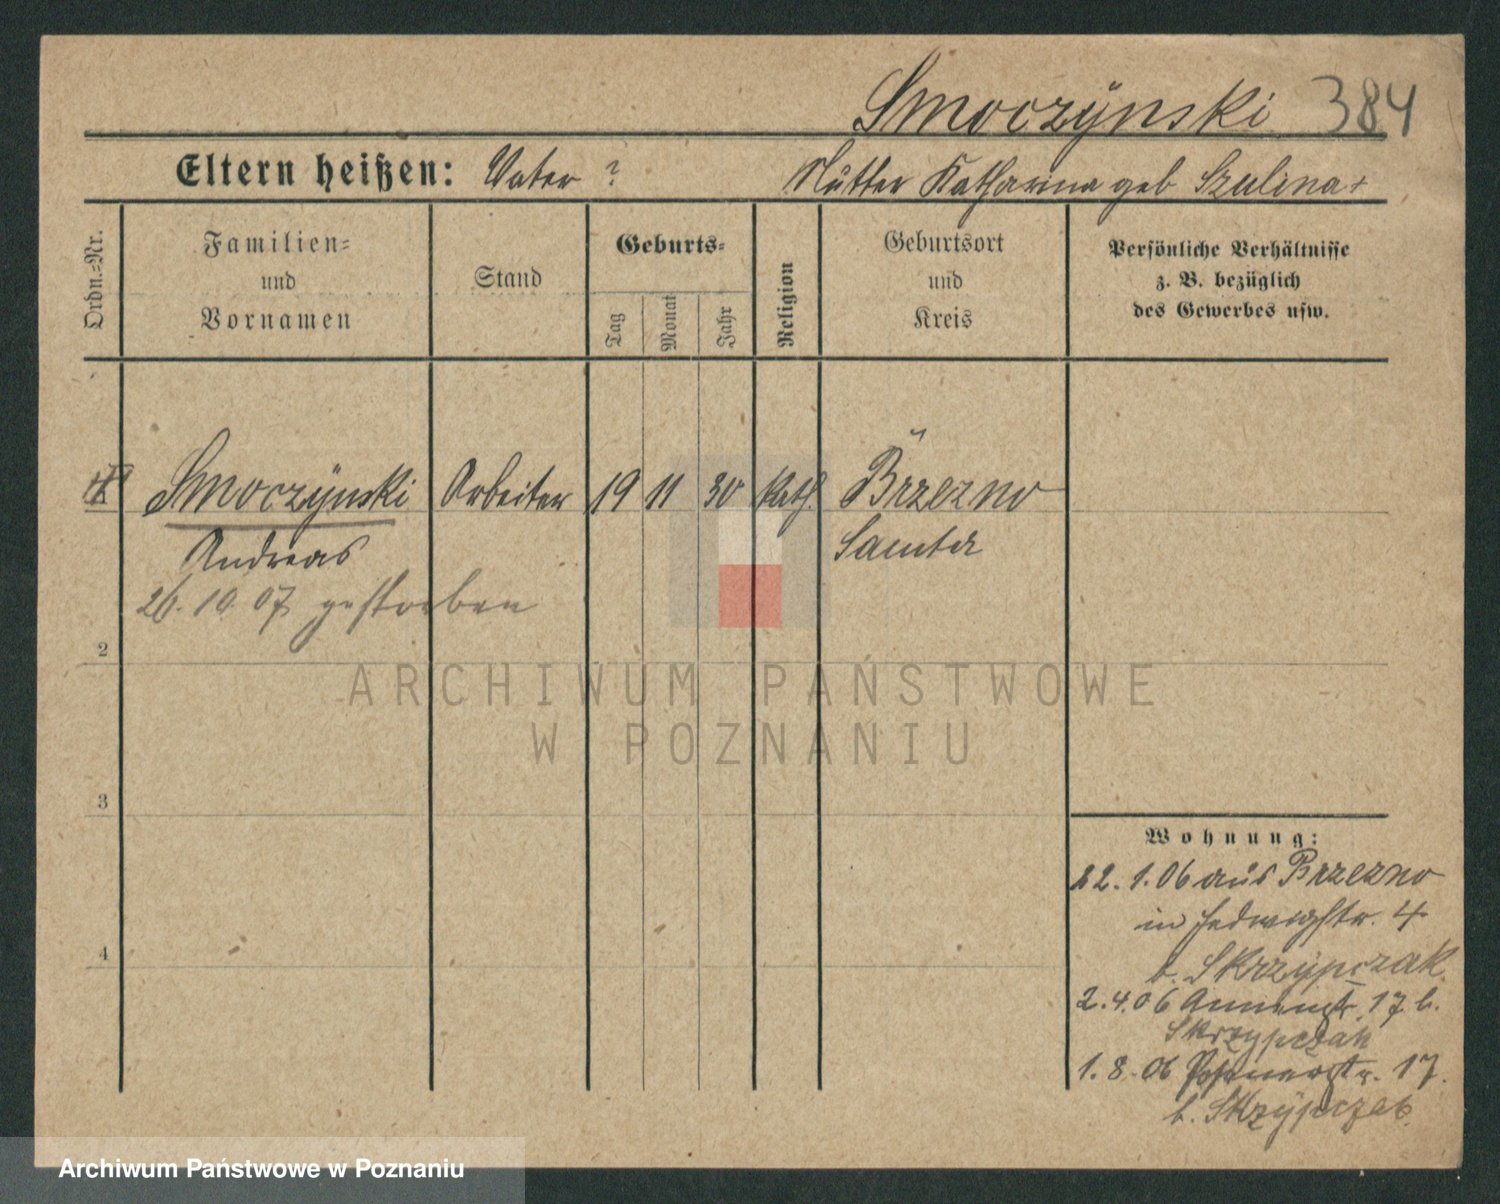 Smoczÿnski 384
Eltern heißen: Vater ? Mutter Katharina geb Szulina +
Ordn.=Nr.
Familien=
und
Vornamen
Stand
Geburts=
Tag
Monat
Jahr
Religion
Geburtsort
und
Kreis
Persönliche Verhältnisse
z. B. bezüglich
des Gewerbes usw.
Smoczÿnski Arbeiter 19 11 30 kath. Brzezno
Andreas Samter
26. 10. 07 gestorben
2
3
4
Wohnung:
22. 1. 06 aus Brzezno
in Hedwigstr. 4
b. Skrzÿpczak
2. 4. 06 Annenstr. 17 b.
Skrzypczak
1. 8. 06 Posenerstr. 17.
b. Skrzÿpczak
ARCHIWUM PAŃSTWOWE
W POZNANIU
Archiwum Państwowe w Poznaniu